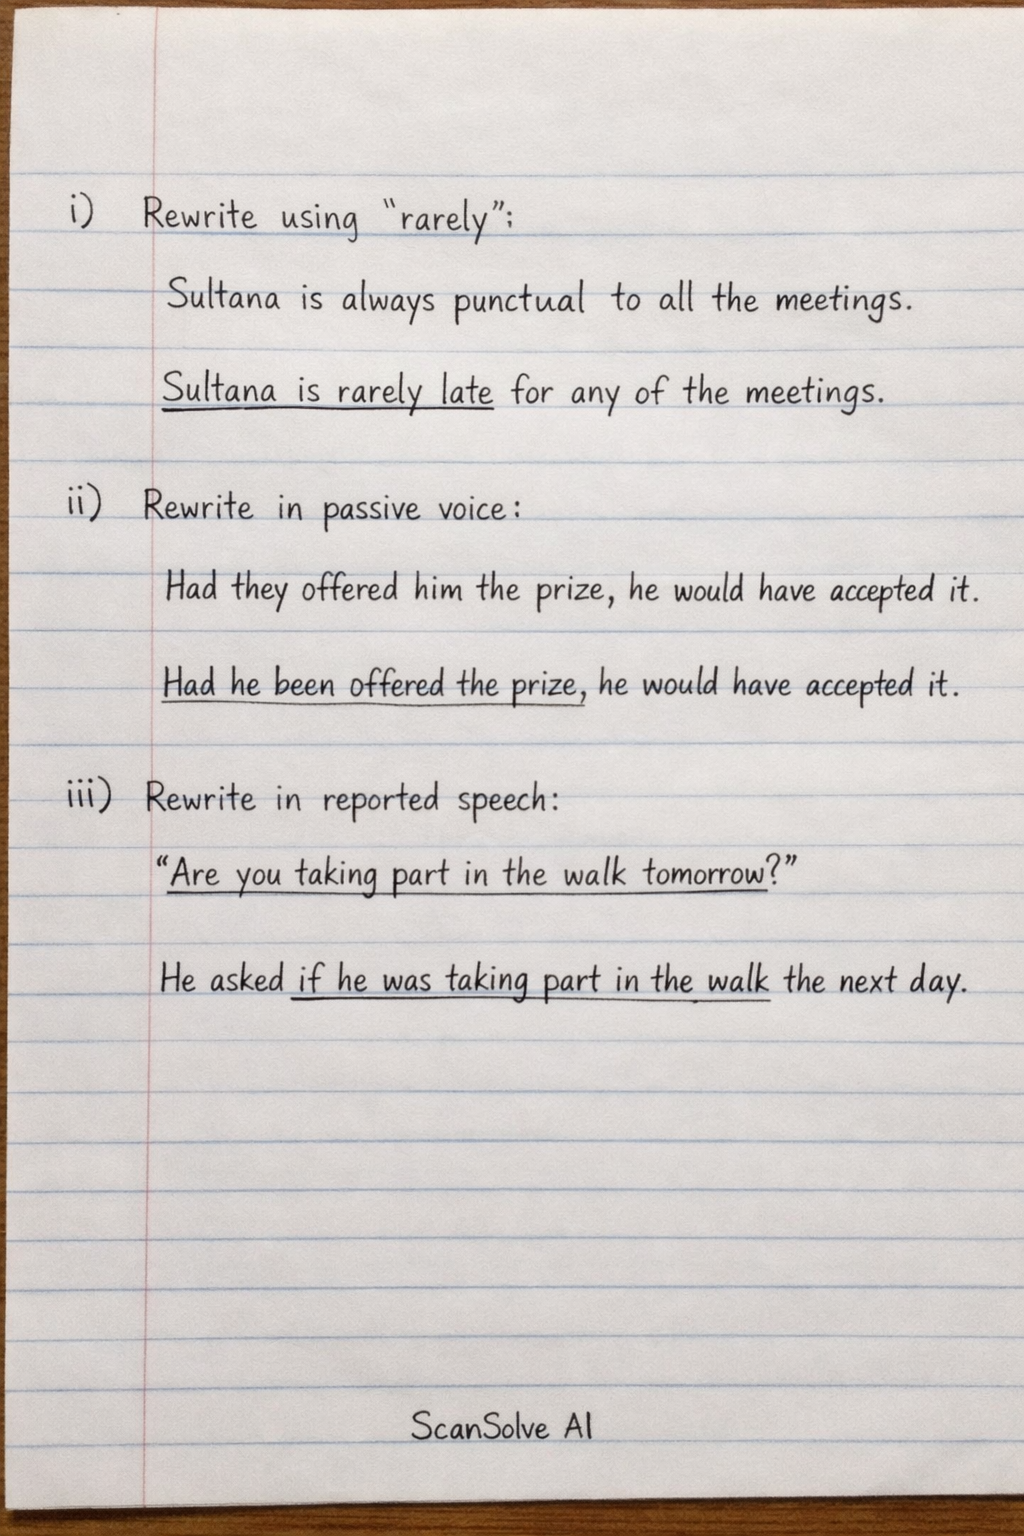 i) Rewrite using "rarely":
Sultana is always punctual to all the meetings.
Sultana is rarely late for any of the meetings.
ii) Rewrite in passive voice:
Had they offered him the prize, he would have accepted it.
Had he been offered the prize, he would have accepted it.
iii) Rewrite in reported speech:
"Are you taking part in the walk tomorrow?"
He asked if he was taking part in the walk the next day.
ScanSolve AI